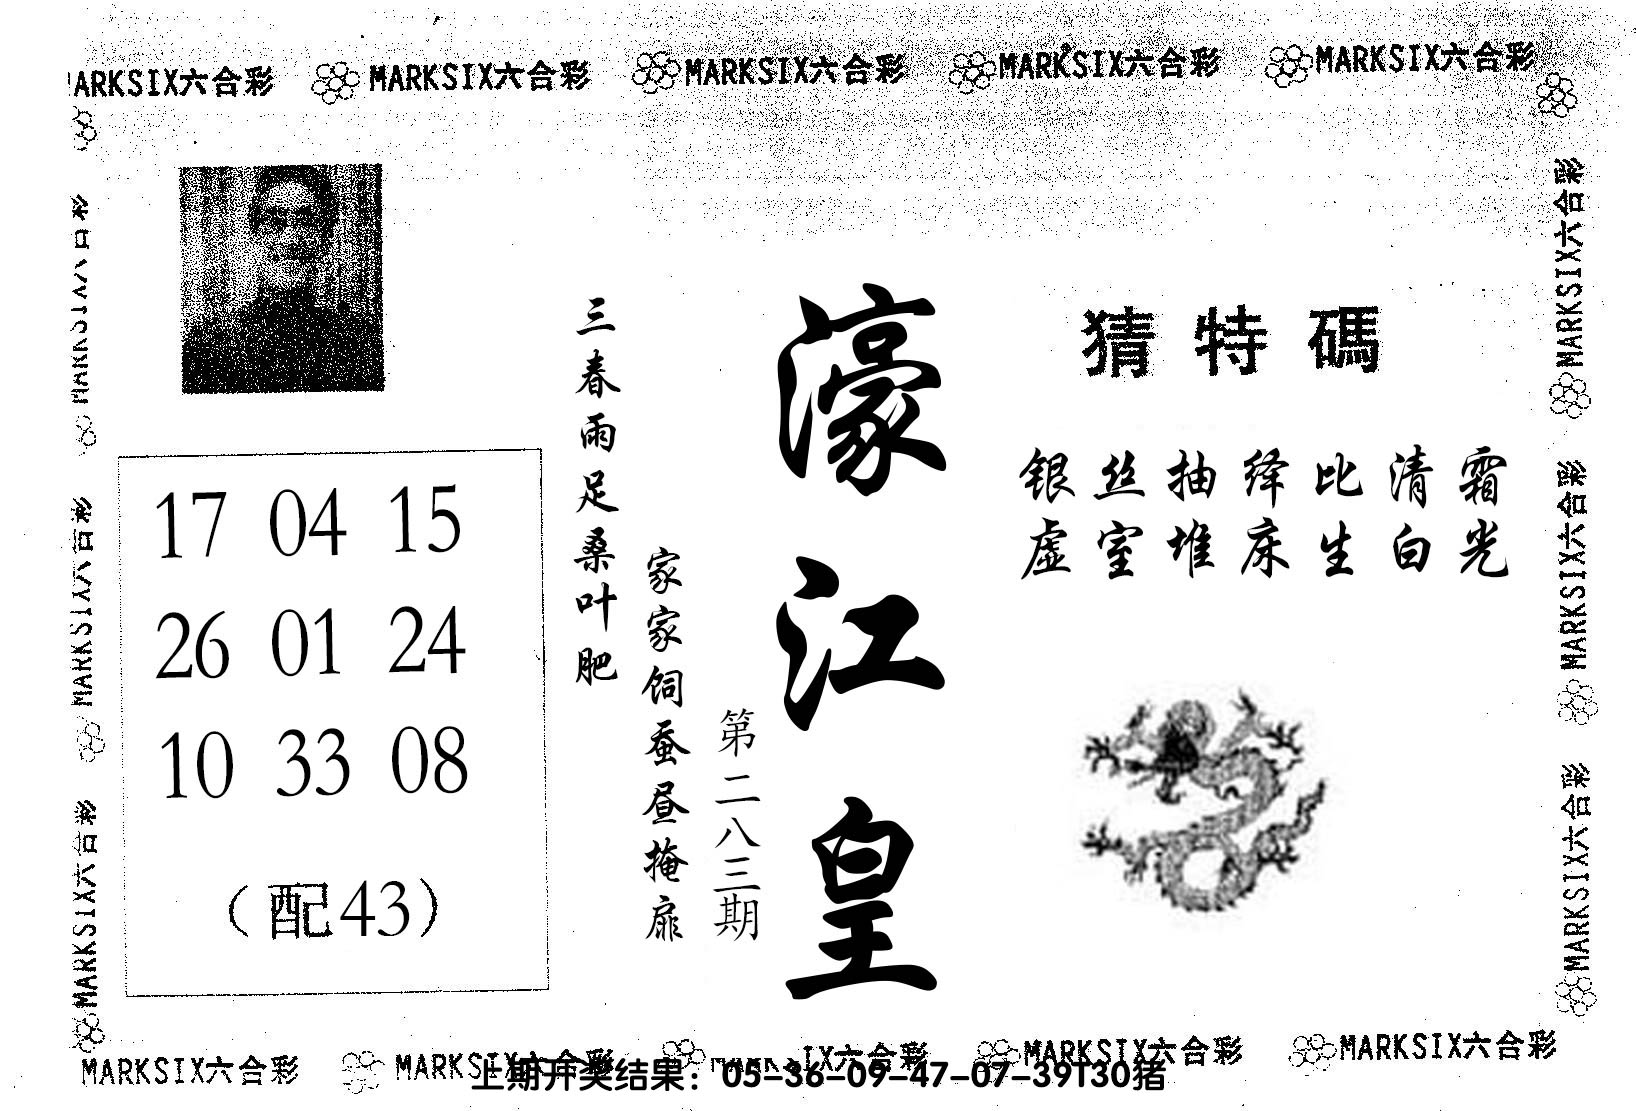 MARKSIX六合彩 MARKSIX六合彩 MARKSIX六合彩 MARKSIX六合彩 MARKSIX六合彩
MARKSIX六合彩
MARKSIX六合彩
MARKSIX六合彩
17 04 15
26 01 24
10 33 08
（配43）
三春雨足桑叶肥
家家饲蚕昼掩扉
第二八三期
濠江皇
猜特碼
银丝抽绎比清霜
虚室堆床生白光
MARKSIX六合彩
MARKSIX六合彩
MARKSIX六合彩
MARKSIX六合彩 MARKSIX六合彩 MARKSIX六合彩 MARKSIX六合彩 MARKSIX六合彩
上期开奖结果：05-36-09-47-07-39T30猪